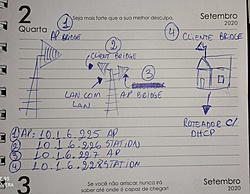 2 Seja mais forte que a sua melhor desculpa. Setembro
Quarta 2020
① AP BRIDGE
② CLIENT BRIDGE
④ CLIENTE BRIDGE
LAN COM LAN
AP BRIDGE
③
ROTEADOR C/ DHCP
① AP: 10.1.6.225 AP
② 10.1.6.226 STATION
③ 10.1.6.227 AP
④ 10.1.6.228 STATION
3 Se você não arriscar, nunca irá saber onde é capaz de chegar. Setembro
2020